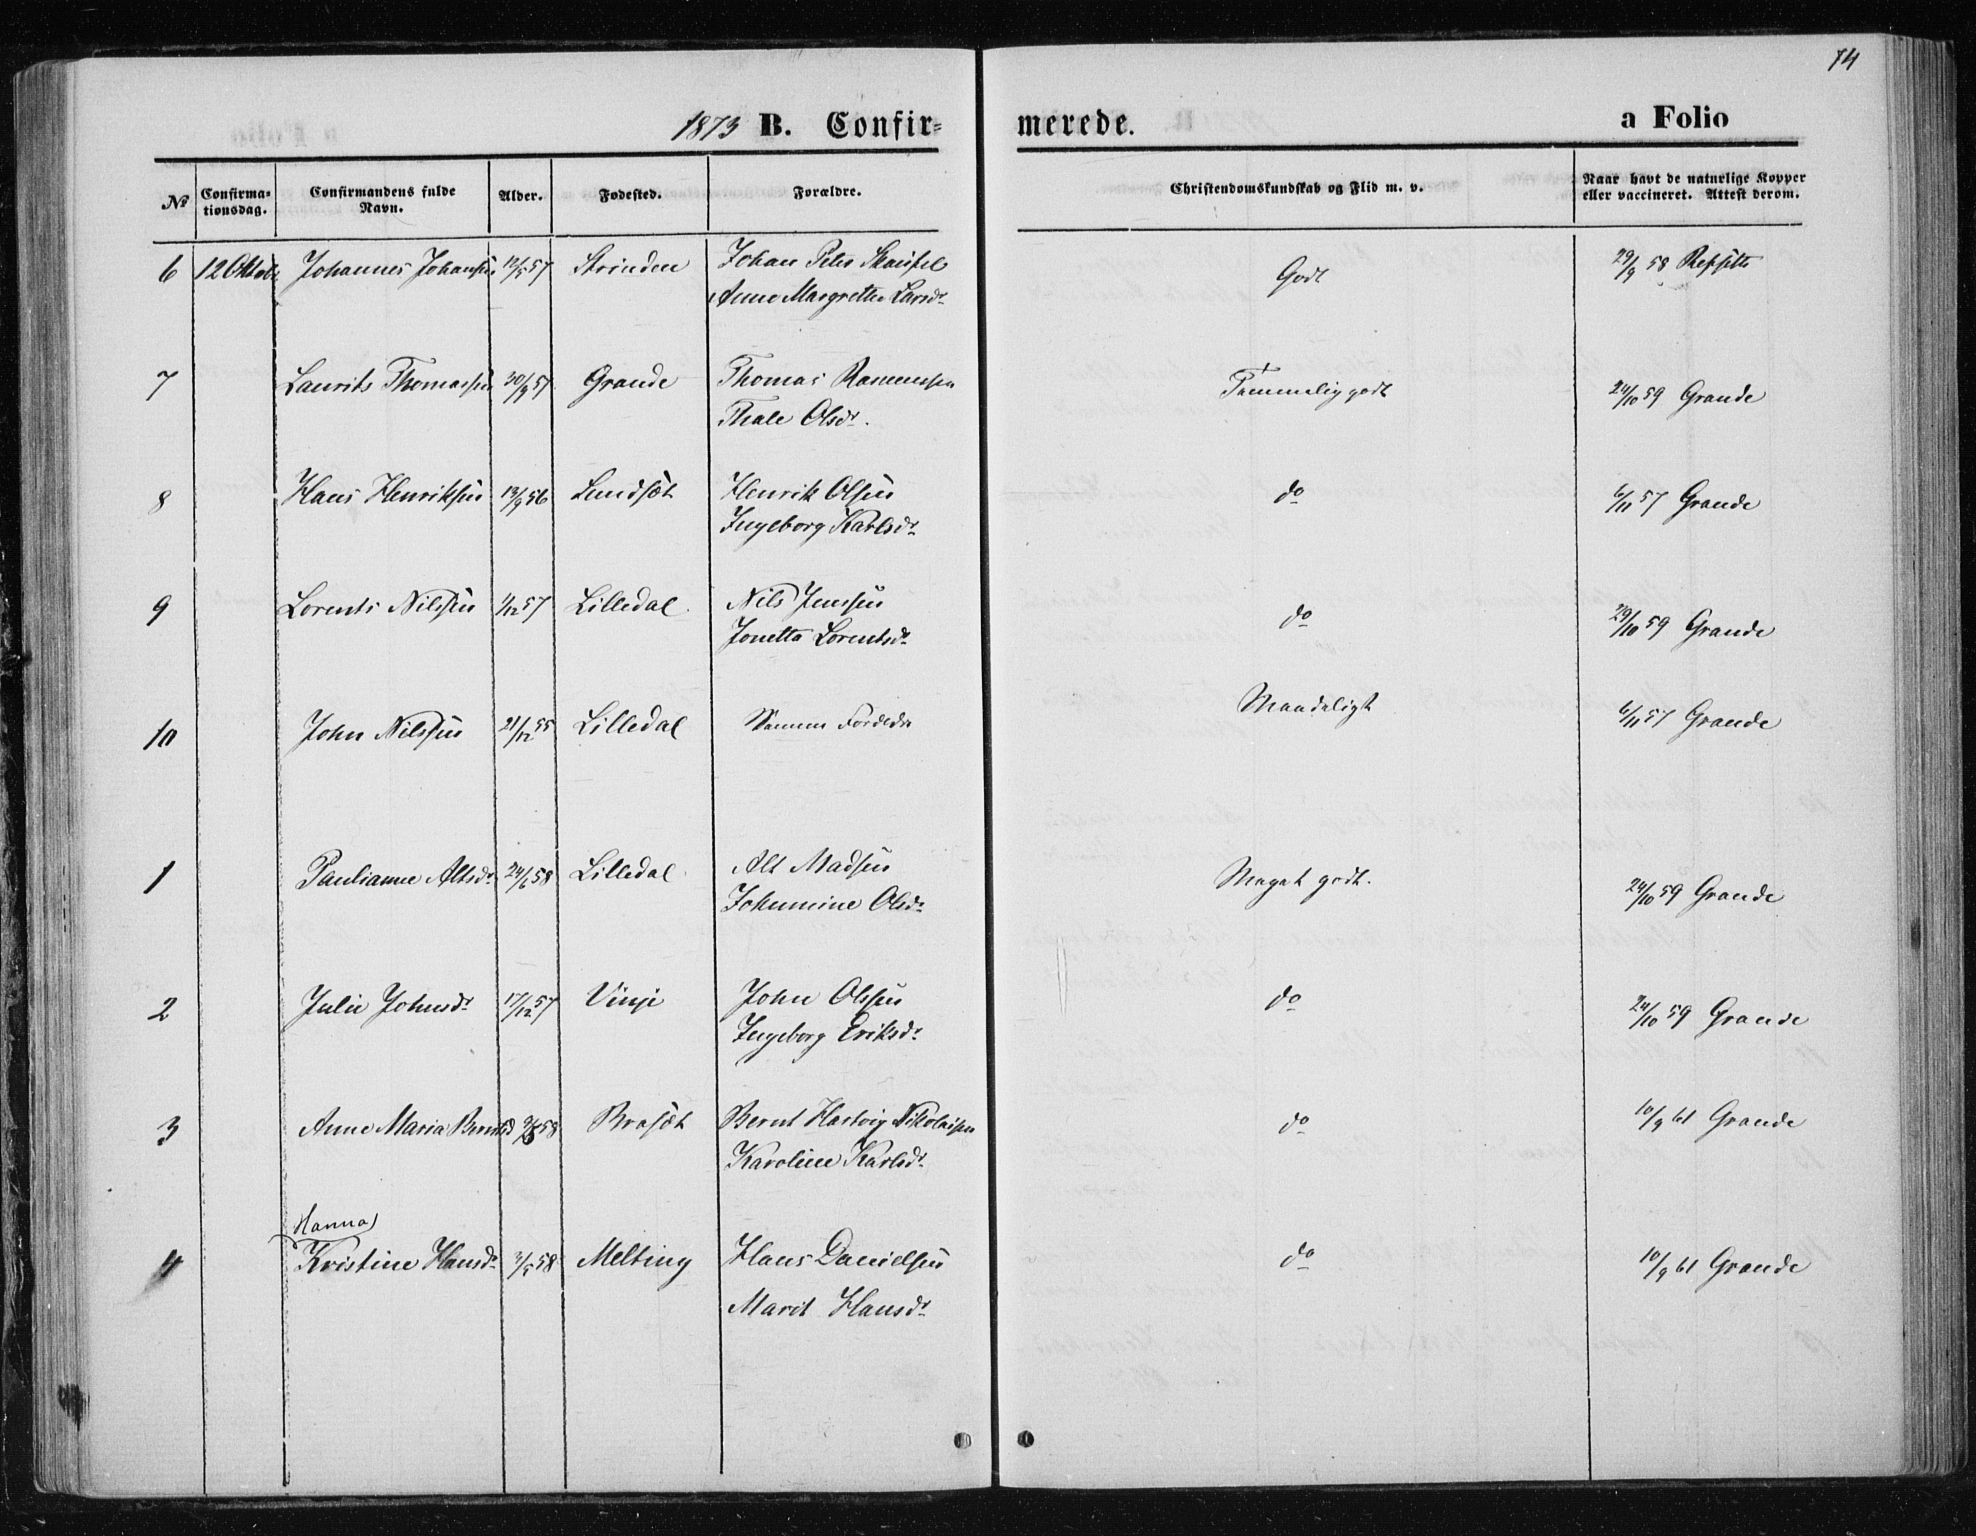 74
1873 B. Confir= merede. a Folio
No Confirma=tionsdag. Confirmandens fulde Navn. Alder. Fødested. Forældre. Christendomskundskab og Flid m. v. Naar havt de naturlige Kopper eller vaccineret. Attest derom.
6 12 Oktob. Johannes Johansen 12/5 57 Strinden Johan Peter Godt 29/9 58
Anne Margrethe Larsdr
7 Laurits Thomassen 30/9 57 Grande Thomas Rasmussen Temmelig godt 24/10 59 Grande
Thale Olsdr.
8 Hans Henriksen 13/9 56 Lundsæt Henrik Olsen do 6/11 57 Grande
Ingeborg Karlsdr
9 Lorents Nilssen 1/12 57 Lilledal Nils Jenssen do 29/10 59 Grande
Jonetta Lorentsdr
10 John Nilssen 21/12 55 Lilledal Samme Forældre Maadeligt 6/11 57 Grande
1 Paulianne Altsdr 24/6 58 Lilledal Alt Madsen Meget godt. 24/10 59 Grande
Johannine Olsdr
2 Julie Johnsdr 17/12 57 Vinje John Olssen do 24/10 59 Grande
Ingeborg Eriksdr
3 Anne Maria Berntsd 58 Brasæt Bernt Hartvig Nikolaisen do 10/9 61 Grande
Karoline Karlsdr
Hanna
4 Kristine Hansdr 3/5 58 Melting Hans Danielsen do 10/9 61 Grande
Marit Hansdr